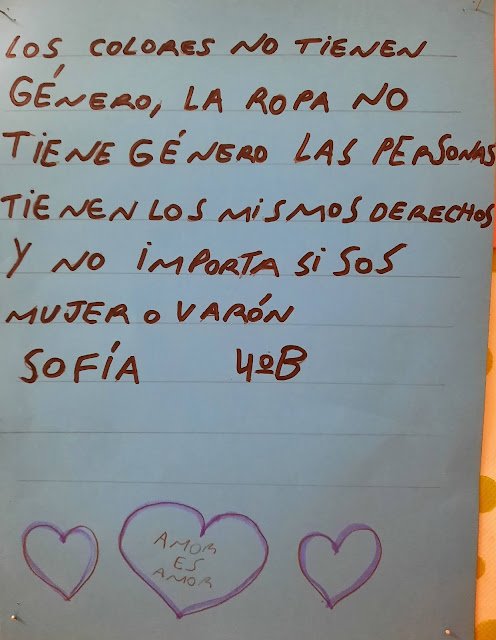 LOS COLORES NO TIENEN
GÉNERO, LA ROPA NO
TIENE GÉNERO LAS PERSONAS
TIENEN LOS MISMOS DERECHOS
Y NO IMPORTA SI SOS
MUJER O VARÓN
SOFÍA 4ºB
AMOR
ES
AMOR